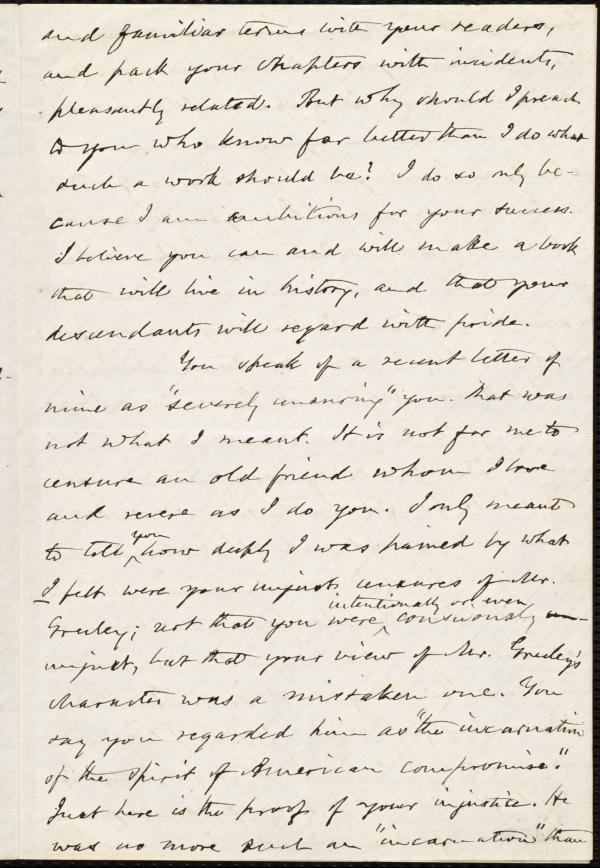 and familiar terms with your readers,
and pack your chapters with incidents,
pleasantly related. But why should I preach
to you who know far better than I do what
such a work should be? I do so only be-
cause I am ambitious for your success.
I believe you can and will make a book
that will live in history, and that your
descendants will regard with pride.
You speak of a recent letter of
mine as "severely censuring" you. That was
not what I meant. It is not for me to
censure an old friend whom I love
and revere as I do you. I only meant
to tell you how deeply I was pained by what
I felt were your unjust censures of Mr.
Greeley; not that you were intentionally or even consciously un-
unjust, but that your view of Mr. Greeley's
character was a mistaken one. You
say you regarded him as "the incarnation
of the spirit of American compromise."
Just here is the proof of your injustice. He
was no more such an "incarnation" than